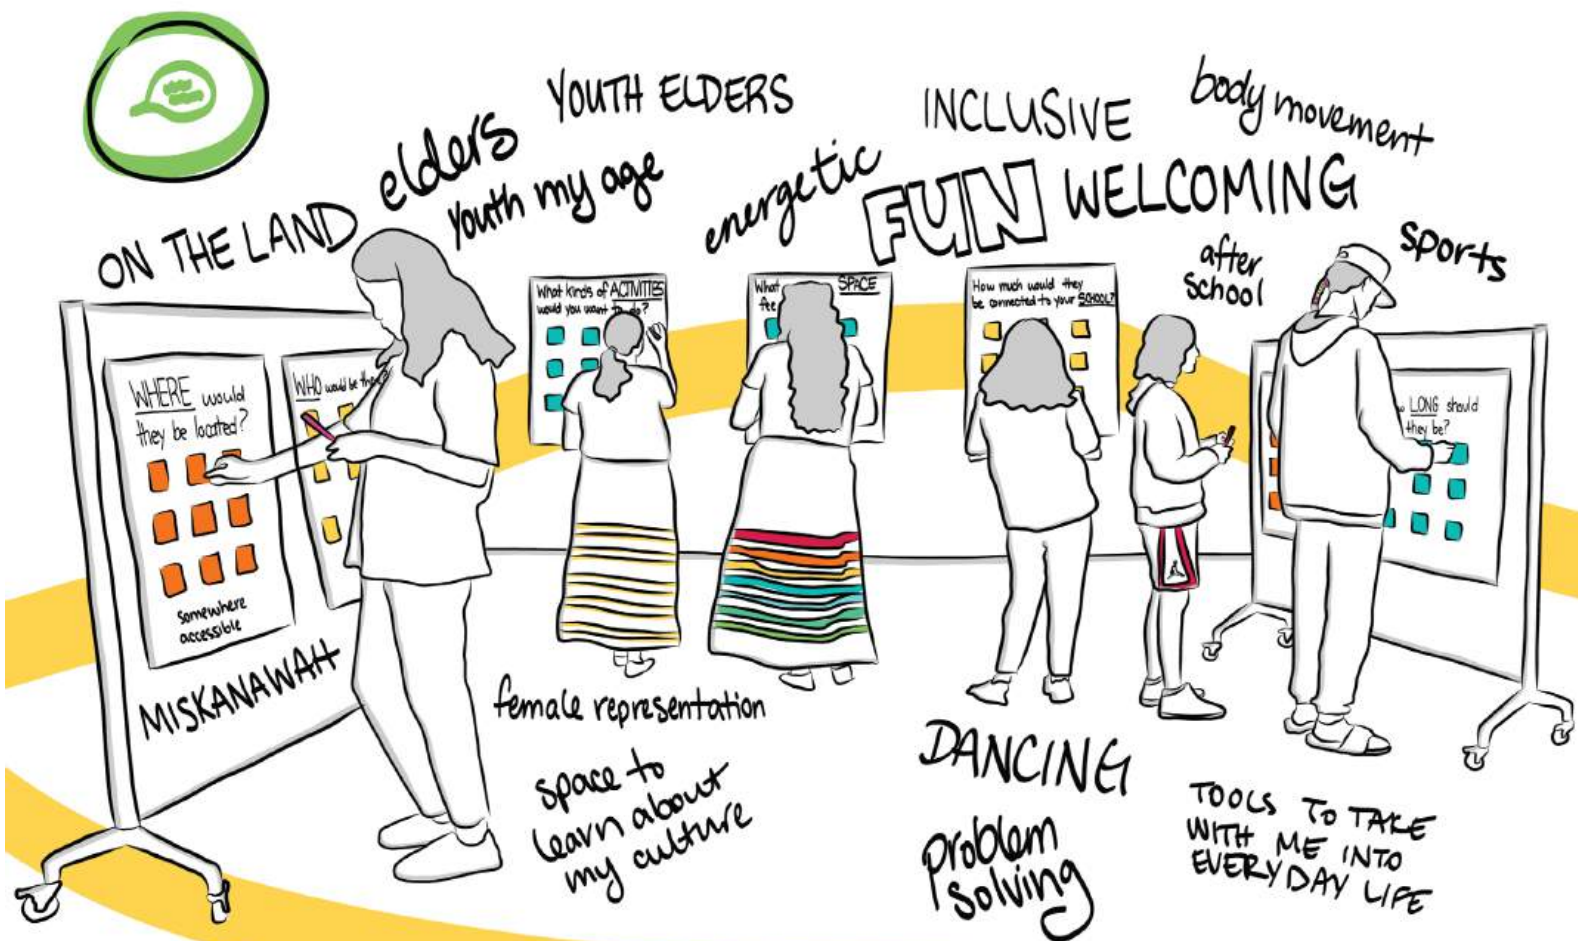 YOUTH ELDERS
elders
youth my age
ON THE LAND
energetic
INCLUSIVE
FUN
body movement
WELCOMING
after
school
sports
WHERE would
they be located?
somewhere
accessible
WHO would be
What kinds of ACTIVITIES
would you want to do?
What SPACE
How much would they
be connected to your SCHOOL?
LONG should
they be?
MISKANAWAH
female representation
space to
learn about
my culture
DANCING
problem
solving
TOOLS TO TAKE
WITH ME INTO
EVERYDAY LIFE